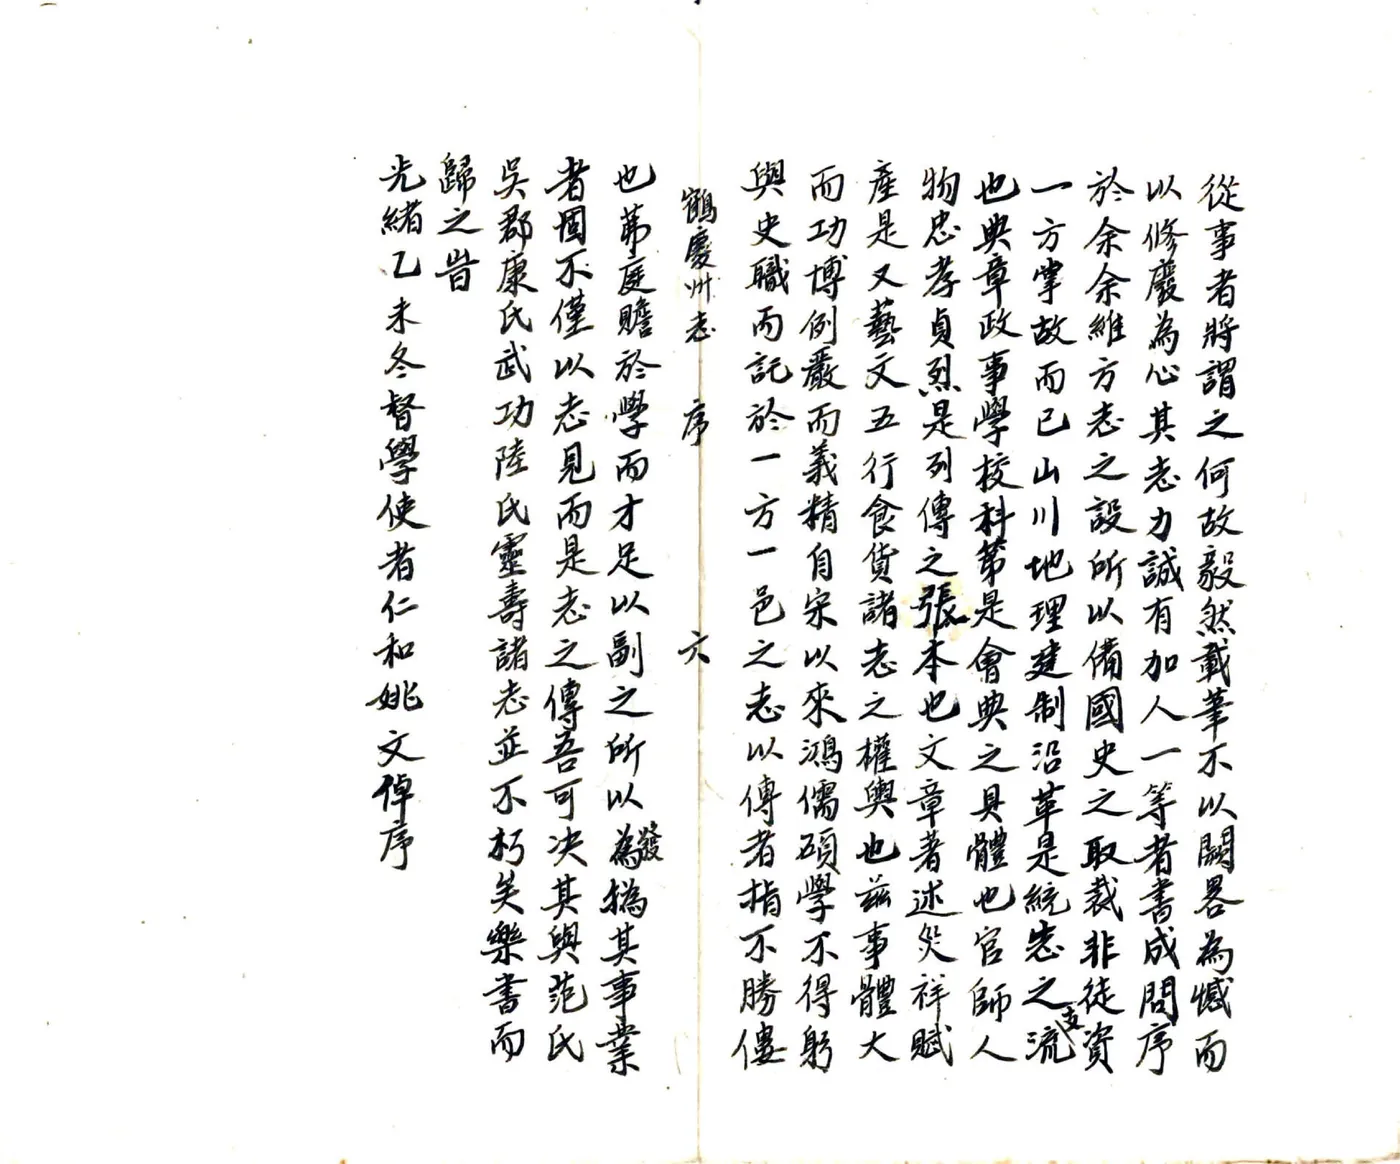 從事者將謂之何故毅然載筆不以闕畧為憾而
以修廢為心其志力誠有加人一等者書成問序
於余余維方志之設所以備國史之取裁非徒資
一方掌故而已山川地理建制沿革是統志之支流
也典章政事學校科第是會典之具體也官師人
物忠孝貞烈是列傳之張本也文章著述災祥賦
產是又藝文五行食貨諸志之權輿也茲事體大
而功博例嚴而義精自宋以來鴻儒碩學不得躬
與史職而託於一方一邑之志以傳者指不勝僂
鶴慶州志 序 六
也茀庭贍於學而才足以副之所以為發撝其事業
者固不僅以志見而是志之傳吾可决其與范氏
吳郡康氏武功陸氏靈壽諸志並不朽矣樂書而
歸之旹
光緒乙未冬督學使者仁和姚文倬序